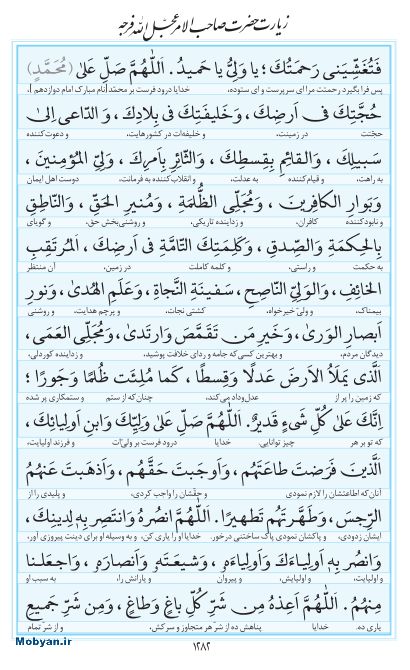 زیارت حضرت صاحب الامر عجل الله فرجه
فَتُغَشِّیَنی رَحمَتُكَ؛ یا وَلِیُّ یا حَمیدُ. اَللّٰهُمَّ صَلِّ عَلیٰ (مُحَمَّدٍ)
پس فرا بگیرد رحمتت مرا؛ ای سرپرست و ای ستوده، خدایا درود فرست بر محمّد [نام مبارک امام دوازدهم]،
حُجَّتِكَ فی اَرضِكَ، وَ خَلیفَتِكَ فی بِلادِكَ، وَ الدّاعی اِلیٰ
حجّتت در زمینت، و خلیفه‌ات در کشورهایت، و دعوت‌کننده
سَبیلِكَ، وَ القائِمِ بِقِسطِكَ، وَ الثّائِرِ بِاَمرِكَ، وَ لِیِّ المُؤمِنینَ،
به راهت، و قیام‌کننده به عدلت، و انقلاب‌کننده به فرمانت، دوست اهل ایمان
وَ بَوارِ الکافِرینَ، وَ مُجَلِّی الظُّلمَةِ، وَ مُنیرِ الحَقِّ، وَ النّاطِقِ
و نابودکننده کافران، و زداینده تاریکی، و روشنی‌بخش حق، و گویای
بِالحِکمَةِ وَ الصِّدقِ، وَ کَلِمَتِكَ التّامَّةِ فی اَرضِكَ، اَلمُرتَقِبِ
به حکمت و راستی، و کلمه کاملت در زمین، آن منتظر
الخائِفِ، وَ الوَلِیِّ النّاصِحِ، سَفینَةِ النَّجاةِ، وَ عَلَمِ الهُدیٰ، وَ نورِ
بیمناک، و ولیّ خیرخواه، کشتی نجات، و پرچم هدایت، و روشنی
اَبصارِ الوَریٰ، وَ خَیرِ مَن تَقَمَّصَ وَ ارتَدیٰ، وَ مُجَلِّی العَمیٰ،
دیدگان مردم، و بهترین کسی که جامه و ردای خلافت پوشید، و زداینده کوردلی،
اَلَّذی یَملَأُ الاَرضَ عَدلًا وَ قِسطًا، کَما مُلِئَت ظُلمًا وَ جَورًا؛
که زمین را پر از عدل و داد می‌کند، چنان‌که از ستم و ستمکاری پر شده
اِنَّكَ عَلیٰ کُلِّ شَیءٍ قَدیرٌ. اَللّٰهُمَّ صَلِّ عَلیٰ وَلِیِّكَ وَ ابنِ اَولِیائِكَ،
که تو بر هر چیز توانایی. خدایا درود فرست بر ولی‌ّات و فرزند اولیایت،
الَّذینَ فَرَضتَ طاعَتَهُم، وَ اَوجَبتَ حَقَّهُم، وَ اَذهَبتَ عَنهُمُ
آنان که اطاعتشان را لازم نمودی و حقّشان را واجب کردی، و پلیدی را از
الرِّجسَ، وَ طَهَّرتَهُم تَطهیرًا. اَللّٰهُمَّ انصُرهُ وَ انتَصِر بِهِ لِدینِكَ،
ایشان زدودی، و پاکشان نمودی پاک ساختنی درخور. خدایا او را یاری کن، و به وسیله او برای دینت پیروزی آور،
وَ انصُر بِهِ اَولِیاءَكَ وَ اَولِیاءَهُ، وَ شیعَتَهُ وَ اَنصارَهُ، وَ اجعَلنا
و اولیایت، و اولیایش، و پیروان و یارانش را، به سبب او
مِنهُم. اَللّٰهُمَّ اَعِذهُ مِن شَرِّ کُلِّ باغٍ وَ طاغٍ، وَ مِن شَرِّ جَمیعِ
یاری ده. خدایا پناهش ده از شرّ هر متجاوز و سرکش، و از شرّ تمام
۱۲۸۲
Mobyan.ir